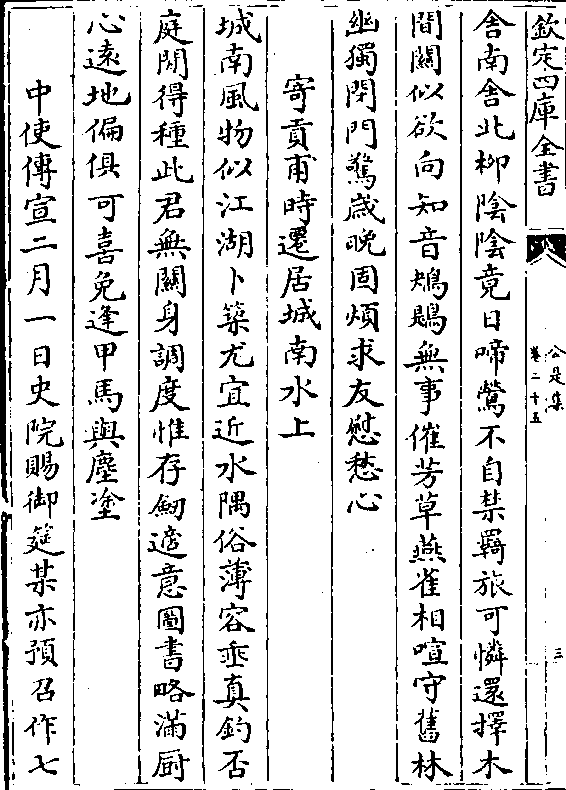 欽定四庫全書
公是集
卷二十五
三
舍南舍北柳陰陰竟日啼鶯不自禁羇旅可憐還擇木
間關似欲向知音鴂鶗無事催芳草燕雀相喧守舊林
幽獨閉門驚歲晚固煩求友慰愁心
寄貢甫時遷居城南水上
城南風物似江湖卜築尤宜近水隅俗薄容乖真釣否
庭閒得種此君無關身調度惟存劒適意圖書略滿厨
心遠地偏俱可喜免逢甲馬與塵塗
中使傳宣二月一日史院賜御筵某亦預召作七